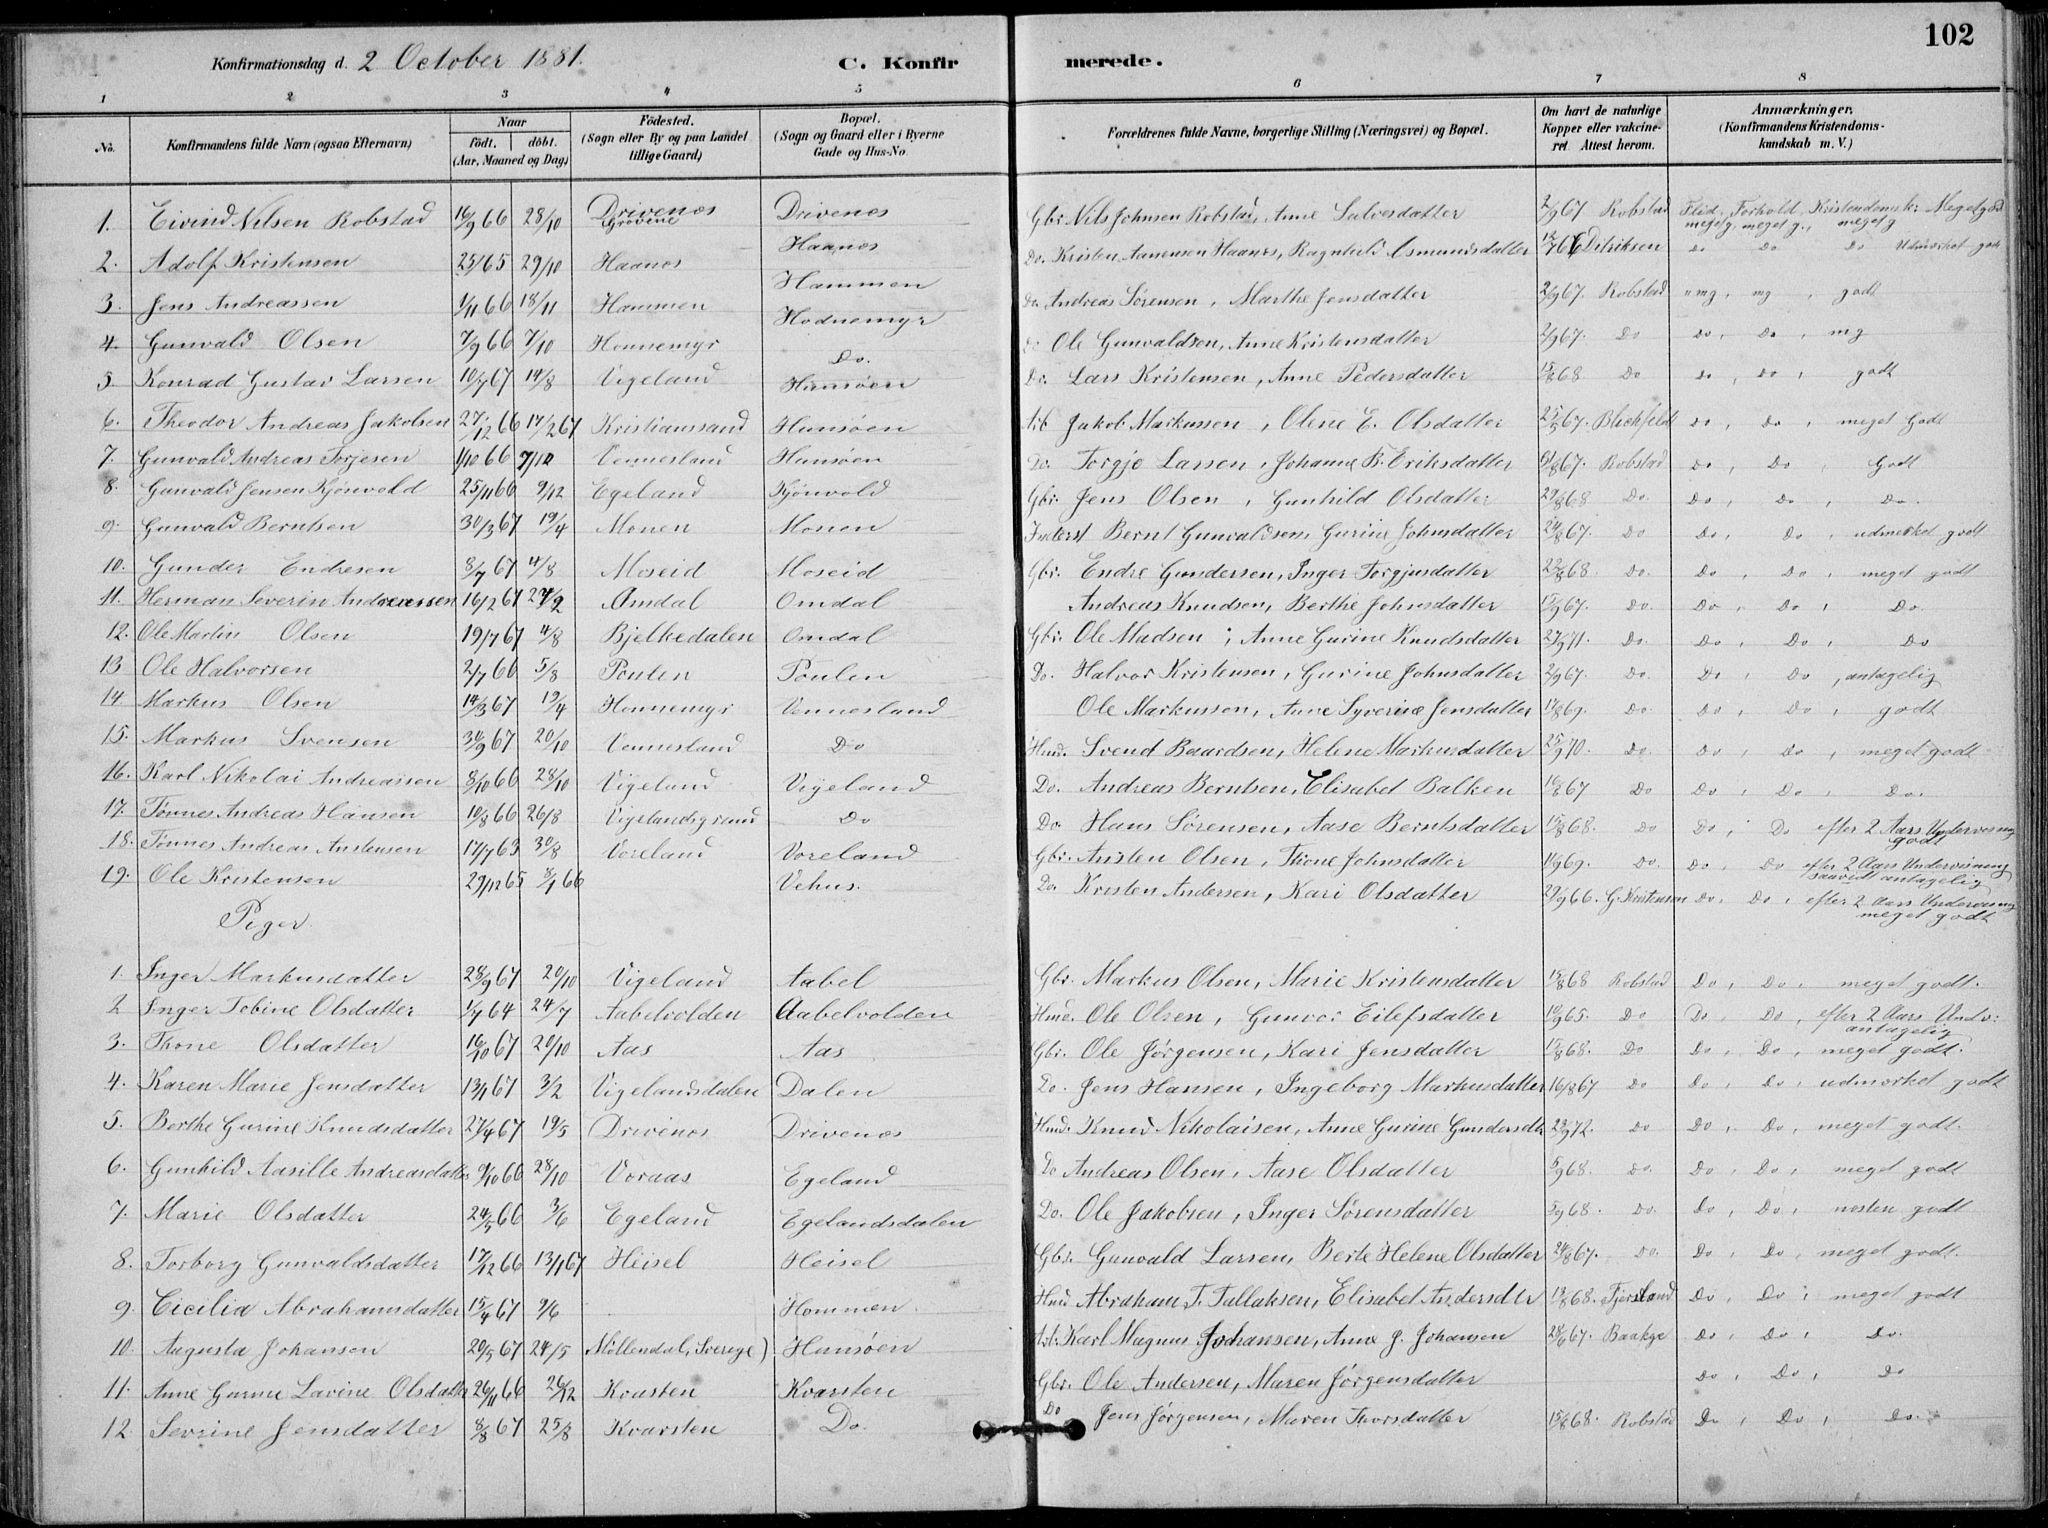 102
Konfirmationsdag d. 2 October 1881.
C. Konfirmerede.
1 2 3 4 5 6 7 8
No. Konfirmandens fulde Navn (ogsaa Efternavn) Naar født. døbt. (Aar, Maaned og Dag) Fødested. (Sogn eller By og paa Landet tillige Gaard) Bopæl. (Sogn og Gaard eller i Byerne Gade og Hus-No. Forældrenes fulde Navne, borgerlige Stilling (Næringsvei) og Bopæl. Om havt de naturlige Kopper eller vakcineret Attest herom. Anmærkninger, (Konfirmandens Kristendomskundskab m. V.)
1. Eivind Nilsen Robstad 16/9 66 28/10 Drivenes Drivenes Gbr. Nils Johnsen Robstad, Anne Salvesdatter 2/9 67 Robstad Flid, Forhold, Kristendomsk: Meget god
meget g. meget g., meget g
2. Adolf Kristensen 25/65 29/10 Haanes Haanes Do. Kristen Aanensen Haanes, Ragnhild Asmundsdatter Do Do Do Udmerket godt
3. Jens Andreassen 1/11 66 18/11 Hammen Hammen Do. Andreas Sørensen, Marthe Jensdatter 2/9 67. Robstad mg, mg, godt
4. Gunvald Olsen 7/9 66 7/10 Honnemyr Hodnemyr Do Ole Gunvaldsen, Anne Kristensdatter 2/9 67. Do Do, Do, mg
5. Konrad Gustav Larsen 10/7 67 14/8 Vigeland Do. Hunsøen Do. Lars Kristensen, Anne Pedersdatter 15/8 68 Do Do, Do, godt
6. Theodor Andreas Jakobsen 27/12 66 17/2 67 Kristianssand Hunsøen Arb Jakob Markussen, Olene E. Olsdatter 25/5 67. Blechfeldt Do, Do, meget Godt
7. Gunvald Andreas Torjesen 1/10 66 7/12 Vennesland Hunsøen Do. Torgje Larsen, Johanne B. Eriksdatter 67. Robstad Do, Do, Godt
8. Gunvald Jensen Kjønvold 25/11 66 9/12 Egeland Kjønvold Gbr. Jens Olsen, Gunhild Olsdatter 29/8 68 Do. Do, Do, Do.
9. Gunvald Berntsen 30/3 67 19/4 Monen Monen Inderst Bernt Gunvaldsen, Gurine Johnsdatter 24/8 67. Do Do, Do, udmerket godt
10. Gunder Endresen 8/7 67 4/8 Moseid Moseid Gbr. Endre Gundersen, Inger Torgjusdatter 23/8 68. Do. Do, Do, meget godt
11. Herman Severin Andreassen 16/2 67 24/2 Omdal Omdal Andreas Knudsen, Berthe Johnsdatter 15/9 67. Do. Do, Do, Do.
12. Ole Martin Olsen 19/7 67 4/8 Bjelkedalen Omdal Gbr. Ole Madsen, Anne Gurine Knudsdatter 27/9 71. Do. Do, Do, Do
13 Ole Halvorsen 2/7 66 5/8 Poulen Poulen Do. Halvor Kristensen, Gurine Johnsdatter 2/9 67. Do. Do, Do, antagelig
14 Markus Olsen 14/3 67 19/4 Honnemyr Vennesland Ole Markussen, Anne Syverine Jensdatter 17/8 69. Do. Do, Do, godt
15. Markus Svensen 30/9 67 20/10 Vennesland Do Hmd. Svend Baardsen, Helene Markusdatter 25/9 70. Do. Do, Do, meget godt
16. Karl Nikolai Andreassen 8/10 66 28/10 Vigeland Vigeland Do. Andreas Berntsen, Elisabet Balken 16/8 67 Do Do, Do, Do.
17. Tønnes Andreas Hansen 10/8 66 26/8 Vigelandsgrund Do Do. Hans Sørensen, Aase Berntsdatter 15/8 68. Do Do, Do efter 2 Aars Undervisning godt
18. Tønnes Andreas Anstensen 17/7 63 30/8 Voreland Voreland Gbr. Ansten Olsen, Thone Johnsdatter 69. Do. Do, Do efter 2 Aars Undervisning saavidt antagelig
19. Ole Kristensen 29/12 65 8/1 66 Vehus. Do. Kristen Andersen, Kari Olsdatter 29/9 66. G. Kristensen Do, Do, efter 2 Aars Undervisning meget godt
Piger.
1. Inger Markusdatter 28/9 67 20/10 Vigeland Aabel Gbr. Markus Olsen, Marie Kristensdatter 15/8 68 Robstad Do, Do, meget godt.
2 Inger Tobine Olsdatter 1/7 64 24/7 Aabelvolden Aabelvolden Hmd. Ole Olsen, Gunvor Eilefsdatter 10/9 65. Do Do, Do, efter 2 Aars Underv: antagelig
3. Thone Olsdatter 16/10 67 20/10 Aas Aas Gbr. Ole Jørgensen, Kari Jensdatter 15/8 68. Do Do, Do, meget godt.
4. Karen Marie Jensdatter 13/1 67 3/2 Vigelandsdalen Dalen Do. Jens Hansen, Ingeborg Markusdatter 16/8 67 Do Do, Do, udmerket godt
5. Berthe Gurine Knudsdatter 27/4 67 19/5 Drivenes Drivenes Hmd. Knud Nikolaisen, Anne Gurine Gundersdtr 23/9 72. Do Do, Do, meget godt.
6. Gunhild Aasille Andreasdatter 9/10 66 28/10 Voraas Egeland Do Andreas Olsen, Aase Olsdatter 5/9 68. Do. Do, Do, meget godt
7. Marie Olsdatter 24/5 66 3/6 Egeland Egelandsdalen Do. Ole Jakobsen, Inger Sørensdatter 5/9 68. Do. Do, Do, næsten godt
8. Torborg Gunvaldsdatter 17/12 66 13/1 67 Heisel Heisel Gbr. Gunvald Larsen, Berte Helene Olsdatter 24/8 67. Do. Do, Do, meget godt.
9. Cicilia Abrahamsdatter 15/4 67 9/6 Hommen Hmd Abraham T. Tallaksen, Elisabet Andersdtr 13/8 68. Fjersland Do, Do, meget godt
10. Augusta Johansen 20/5 67 24/5 Møllendal, Sverige) Hunsøen Arb. Karl Magnus Johansen, Anne J. Johansen 28/6 67. Baakge Do, Do, Do.
11. Anne Gurine Lavine Olsdatter 26/11 66 26/12 Kvasten Kvarsten Gbr. Ole Andersen, Maren Jørgensdatter Do, Do, Do
12. Sevrine Jensdatter 8/8 67 25/8 Kvarsten Do. Do Jens Jørgensen, Maren Thorsdatter 15/8 68. Robstad Do, Do, Do.